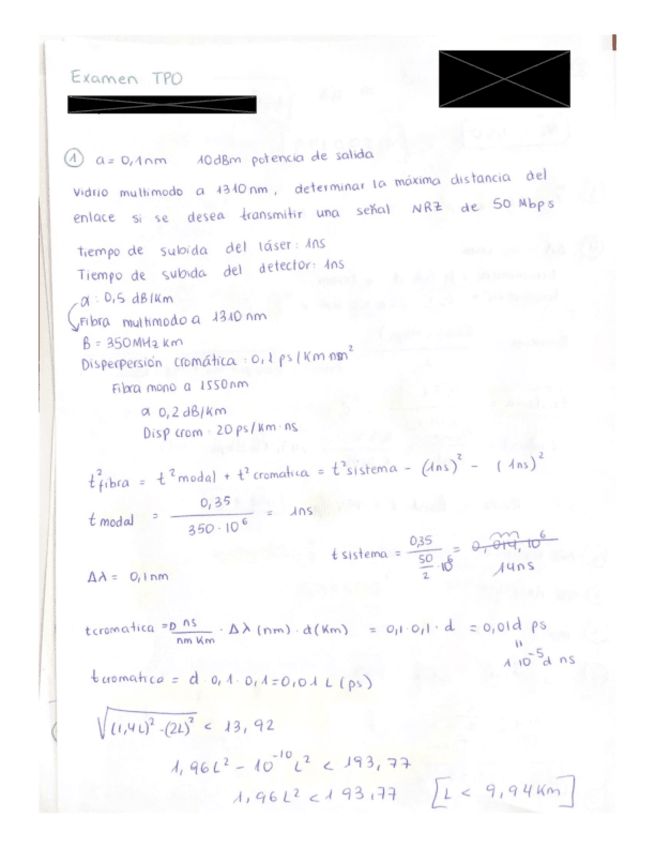 Examen TPO
① a = 0,1nm 10dBm potencia de salida
Vidrio multimodo a 1310nm, determinar la máxima distancia del
enlace si se desea transmitir una señal NRZ de 50 Mbps
Tiempo de subida del láser: 1ns
Tiempo de subida del detector: 1ns
α : 0,5 dB/Km
Fibra multimodo a 1310 nm
B = 350MHz Km
Disperpersión cromática : 0,1 ps/Km nm²
Fibra mono a 1550nm
α 0,2 dB/Km
Disp crom : 20 ps/km·ns
t²fibra = t²modal + t²cromatica = t²sistema - (1ns)² - (1ns)²
t modal = 0,35 / 350·10⁶ = 1ns
t sistema = 0,35 / 50/2 ·10⁶ = 0,014·10⁶
14ns
Δλ = 0,1nm
tcromatica = D ns/nm Km · Δλ(nm)·d(Km) = 0,1·0,1·d = 0,01d ps
"
1·10⁻⁵d ns
tcromatica = d 0,1·0,1=0,01 L (ps)
√(1,4L)²-(2L)² < 13,92
1,96L² - 10⁻¹⁰L² < 193,77
1,96L² < 193,77 [L < 9,94Km]